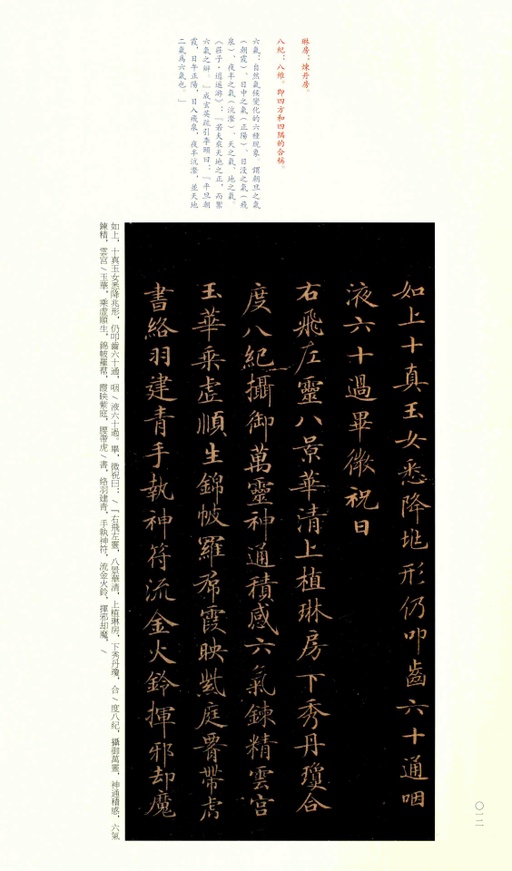 琳房：煉丹房。
八紀：八維。即四方和四隅的合稱。
六氣：自然氣候變化的六種現象。謂朝旦之氣
（朝霞）、日中之氣（正陽）、日没之氣（飛
泉）、夜半之氣（沆瀣）、天之氣、地之氣。
《莊子·逍遥游》：「若夫乘天地之正，而禦
六氣之辯。」成玄英疏引李頤曰：「平旦朝
霞，日午正陽，日入飛泉，夜半沆瀣，並天地
二氣爲六氣也。」
如上十真玉女悉降垗形仍叩齒六十通咽
液六十過畢微祝曰
右飛左靈八景華清上植琳房下秀丹瓊合
度八紀攝御萬靈神通積感六氣鍊精雲宫
玉華乘虚順生錦帔羅帬霞映紫庭署帶虎
書絡羽建青手執神符流金火鈴揮邪却魔
如上，十真玉女悉降兆形，仍叩齒六十通，咽\液六十過。畢，微祝曰：\「右飛左靈，八景華清，上植琳房，下秀丹瓊，合\度八紀，攝御萬靈，神通積感，六氣
鍊精，雲宫\玉華，乘虚順生，錦帔羅帬，霞映紫庭，腰帶虎\書，絡羽建青，手執神符，流金火鈴，揮邪却魔。\
〇一二